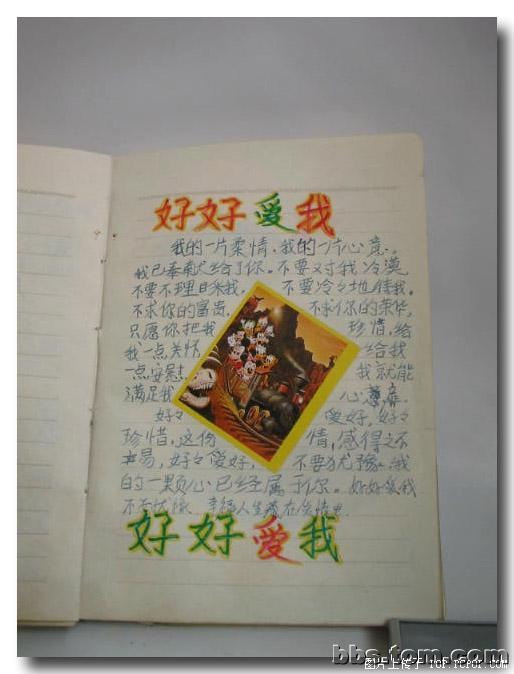 好好爱我
我的一片柔情、我的一片心意。
我已奉献给了你。不要对我冷漠
不要不理日来我。 不要冷冷地待我。
不求你的富贵, 不求你的荣华,
只愿你把我 珍惜,给
我一点关怀 给我
一点安慰 我就能
满足我 心意
好々 爱好,好々
珍惜,这份 情,感得之不
易,好々爱好, 不要犹豫.我
的一颗心已经属于你。好好爱我
不要犹豫 幸福人生藏在
好好爱我
bbs.tom.com
图片上传于